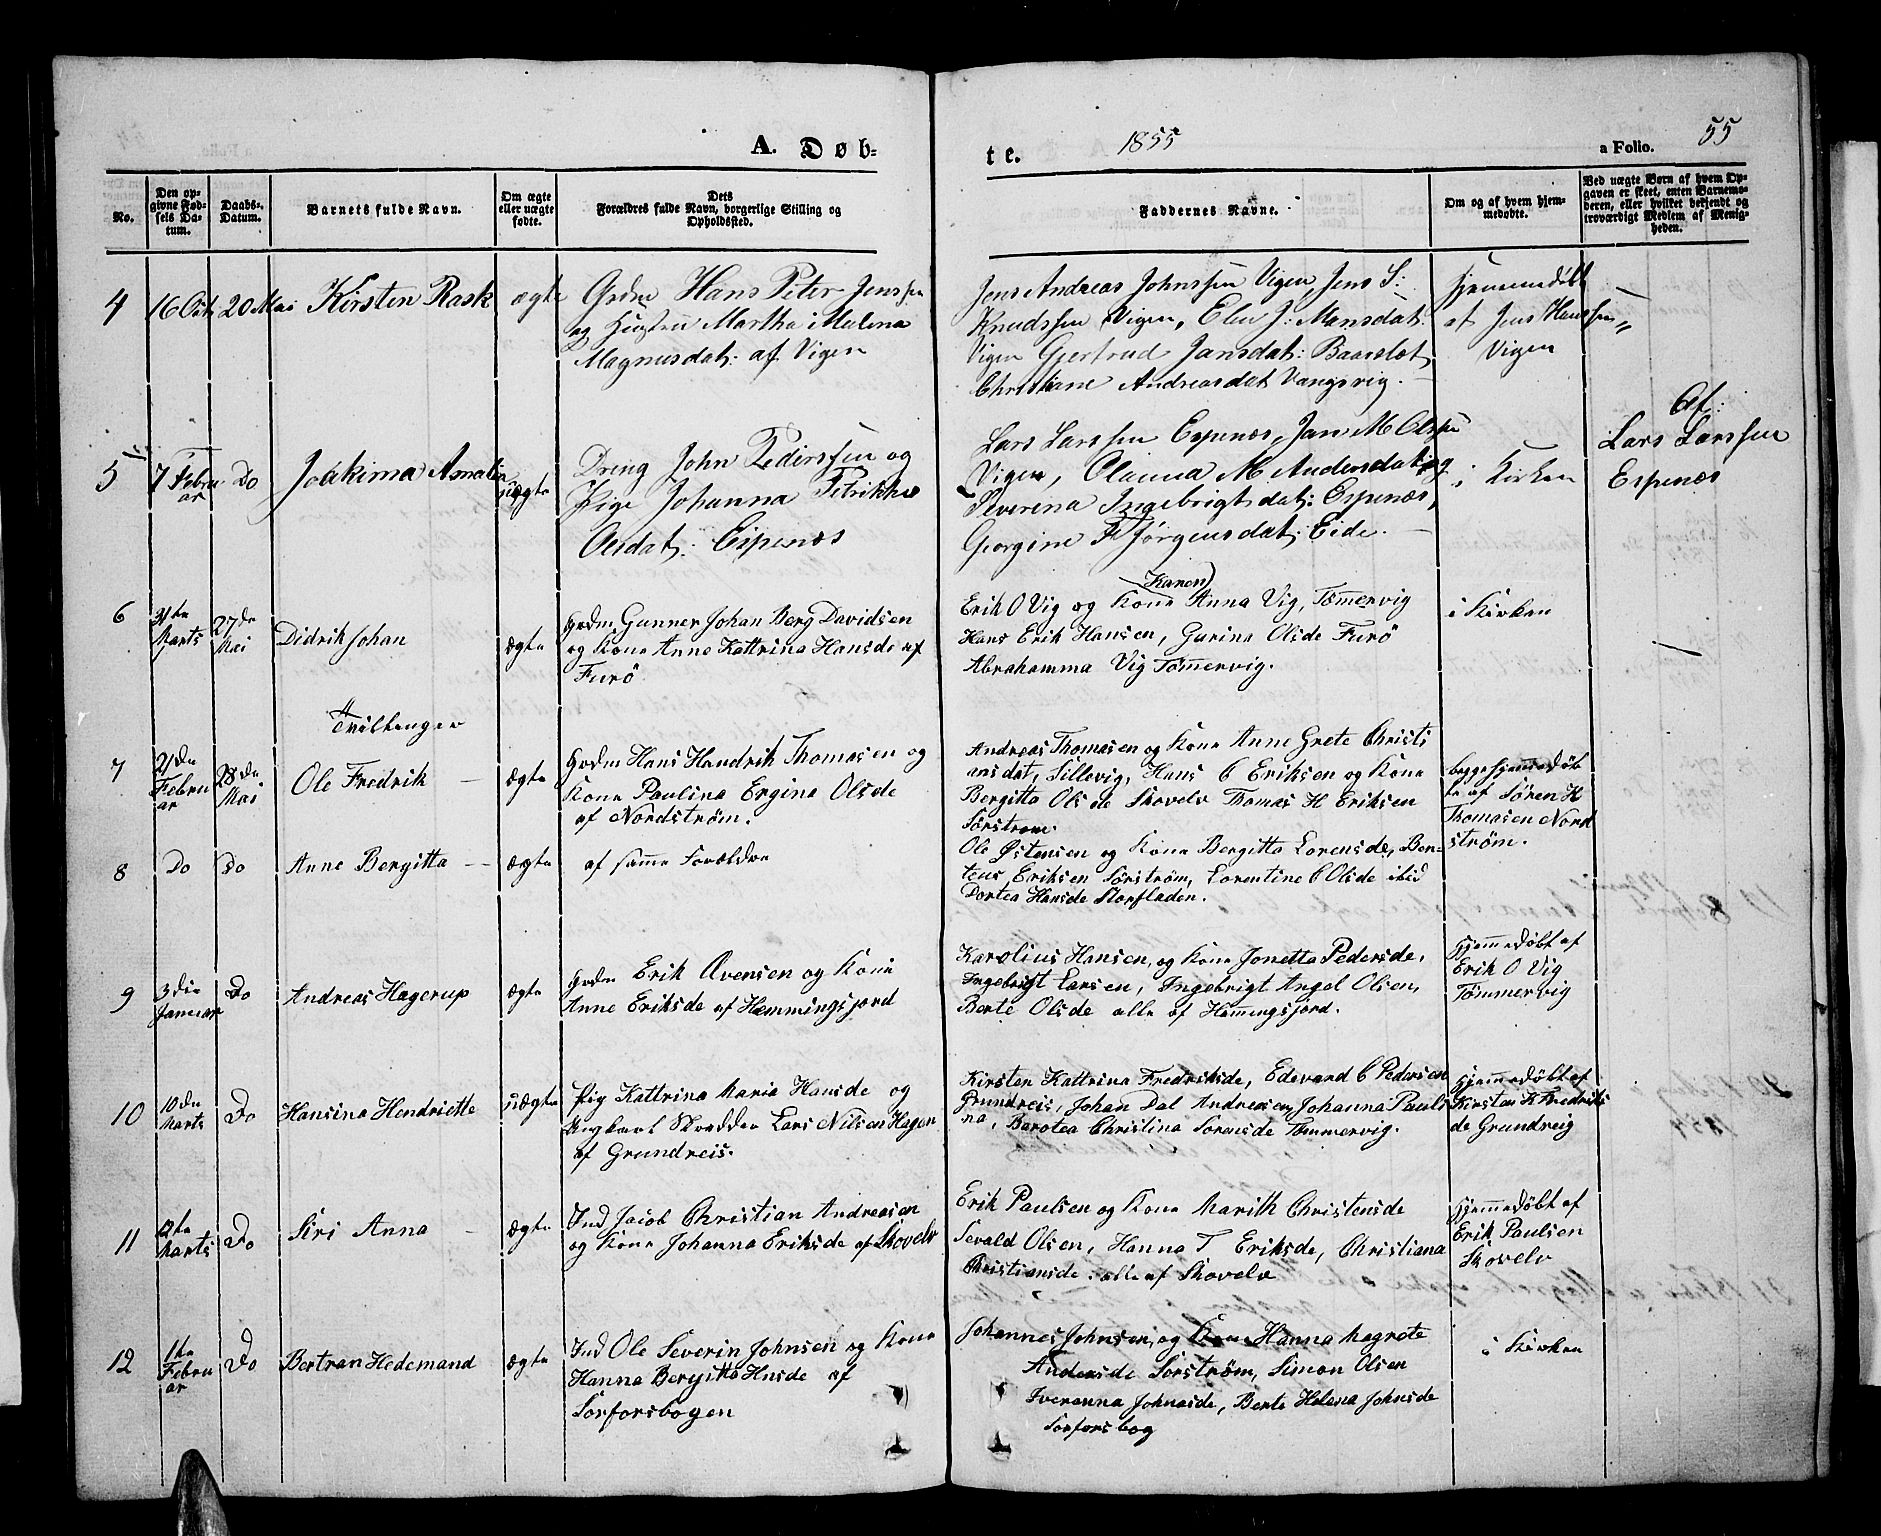 A. Døb-
te.
1855
a Folio.
55
No.
Den op-
givne Fød-
sels Da-
tum.
Daabs-
Datum.
Barnets fulde Navn.
Om ægte
eller uægte
fødte.
Dets
Forældres fulde Navn, borgerlige Stilling og
Opholdssted.
Faddernes Navne.
Om og af hvem hjem-
medøbte.
Ved uægte Børn af hvem Op-
gaven er skeet, enten Barnemo-
deren, eller hvilket bekjendt og
troværdigt Medlem af Menig-
heden.
4
16 Oct
20 Mai
Kirsten Rask
ægte
Grdm Hans Peter Jenssen
og Hustru Martha Malena
Magnusdat: af Vigen
Jens Andreas Johnssen Vigen, Jens S:
Knudssen Vigen, Elen J: Mansdat:
Vigen Gjertrud Jansdat: Baarslet,
Christiane Andreasdat Vangsvig.
hjemmedöbt
af Jens Hanssen
Vigen
"
5
7 Febru
ar
Do
Joakima Amalia
uægte
Dreng John Pederssen og
Pige Johanna Petrikke
Olsdat: Espenæs
Lars Larssen Espenæs, Jan M Olssen
Vigen, Olauna M Andersdat: og
Severina Ingebrigtsdat: Espenæs,
Georgine F Jörgensdat: Eide.
i Kirken
Af:
Lars Larssen
Espenæs
6
31te
Marts
27de
Mai
Didrik Johan
ægte
Grdm Gunner Johan Berg Davidsen
og Kone Anne Kattrina Hansde af
Furö
Karen
Erik O Vig og Kone Anna Vig, Tömmervig
Hans Erik Hansen, Gurina Olsde Furö
Abrahamma Vig Tömmervig.
i Kirken
Tvillenger
7
21de
Febru
ar
28de
Mai
Ole Fredrik
ægte
Grdm Hans Hendrik Thomasen og
Kone Paulina Ergina Olsde
af Nordström.
Andreas Thomasen og Kone Anne Grete Christi
ansdat, Sillevig, Hans C Eriksen og Kone
Bergitta Olsde Skovelv Thomas H Eriksen
Sörstrom.
begge hjemmedöb
te af Sören H
Thomasen Nord
ström.
8
Do
Do
Anne Bergitta
ægte
af samme Forældre
Ole Østensen og Kone Bergitta Lorensde, Ber-
teus Eriksen Sörström, Lorentine C Olsde ibid
Dortea Hansde Storfladen.
9
3die
Januar
Do
Andreas Hagerup
ægte
Grdm Erik Ovensen og Kone
Anne Eriksde af Hemmingsjord
Karolius Hansen, og Kone Jonetta Pedersde,
Ingebrigt Larsen, Ingebrigt Angel Olsen,
Berte Olsde alle af Hemingsjord.
Hjemmedöbt af
Erik O Vig
Tömmervig
10
10de
Marts
Do
Hansina Hendriette
uægte
Pig Kattrina Maria Hansde og
Ungkarl Skrædder Lars Nilsen Hagen
af Grundreis.
Kirsten Kattrina Fredriksde, Edevard C Pedersen
Grundreis, Johan Dal Andreasen, Johanna Pauli
na, Berotea Christina Sorensde Tömmervig.
hjemmedöbt af
Kirsten K Fredriks
de Grundreig
11
12te
Marts
Do
Siri Anna
ægte
Ind Jacob Christian Andreasen
og Kone Johanna Eriksde af Skovelv
Erik Paulsen og Kone Marith Christensde
Sevald Olsen, Hanna T Eriksde, Christiana
Christiansde: alle af Skovelv
hjemmedöbt af
Erik Paulsen
Skovelv
12
1te
Febru
ar
Do
Bertran Hedemand
ægte
Ind Ole Severin Johnsen og Kone
Hanna Bergitta Hnsde af
Sorforsbogen
Johannes Johnsen, og Kone Hanna Magrete
Andersde Sorström, Simon Olsen
Iveranna Johnasde, Berte Helena Johnsde
Sorforsbog
i Kirken